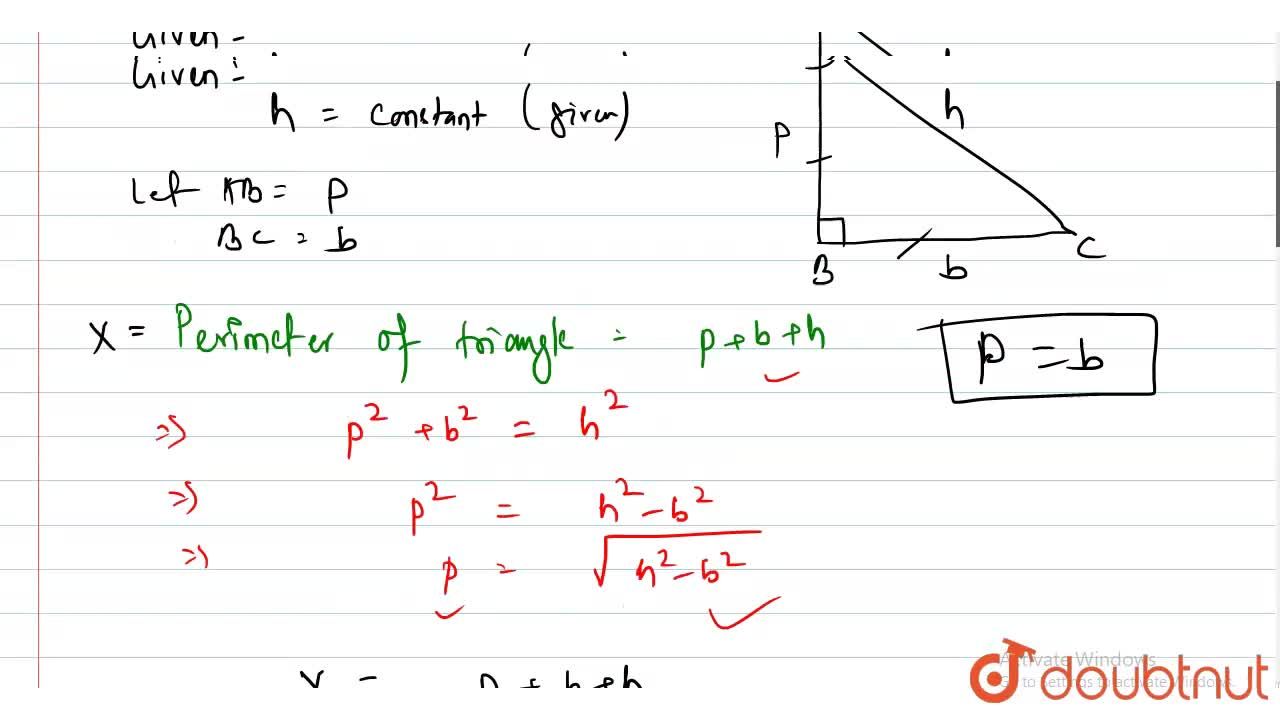 Given =
Given :-
h = constant (given)
Let AB = p
BC = b
P
h
B
b
C
X = Perimeter of triangle = p + b + h
P = b
=> p² + b² = h²
=> p² = h² - b²
=> p = √h² - b²
X = p + b + h
Activate Windows
Go to Settings to activate Windows.
doubtnut